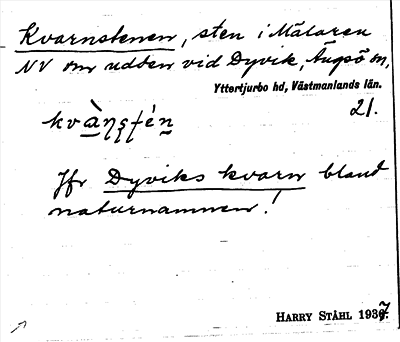 Kvarnstenen, sten i Mälaren
NV om udden vid Dyvik, Ängsö sn,
Yttertjurbo hd, Västmanlands län.
21.
kvàŋsté̱n
Jfr Dyviks kvarn bland
naturnamnen!
HARRY STÅHL 1937.